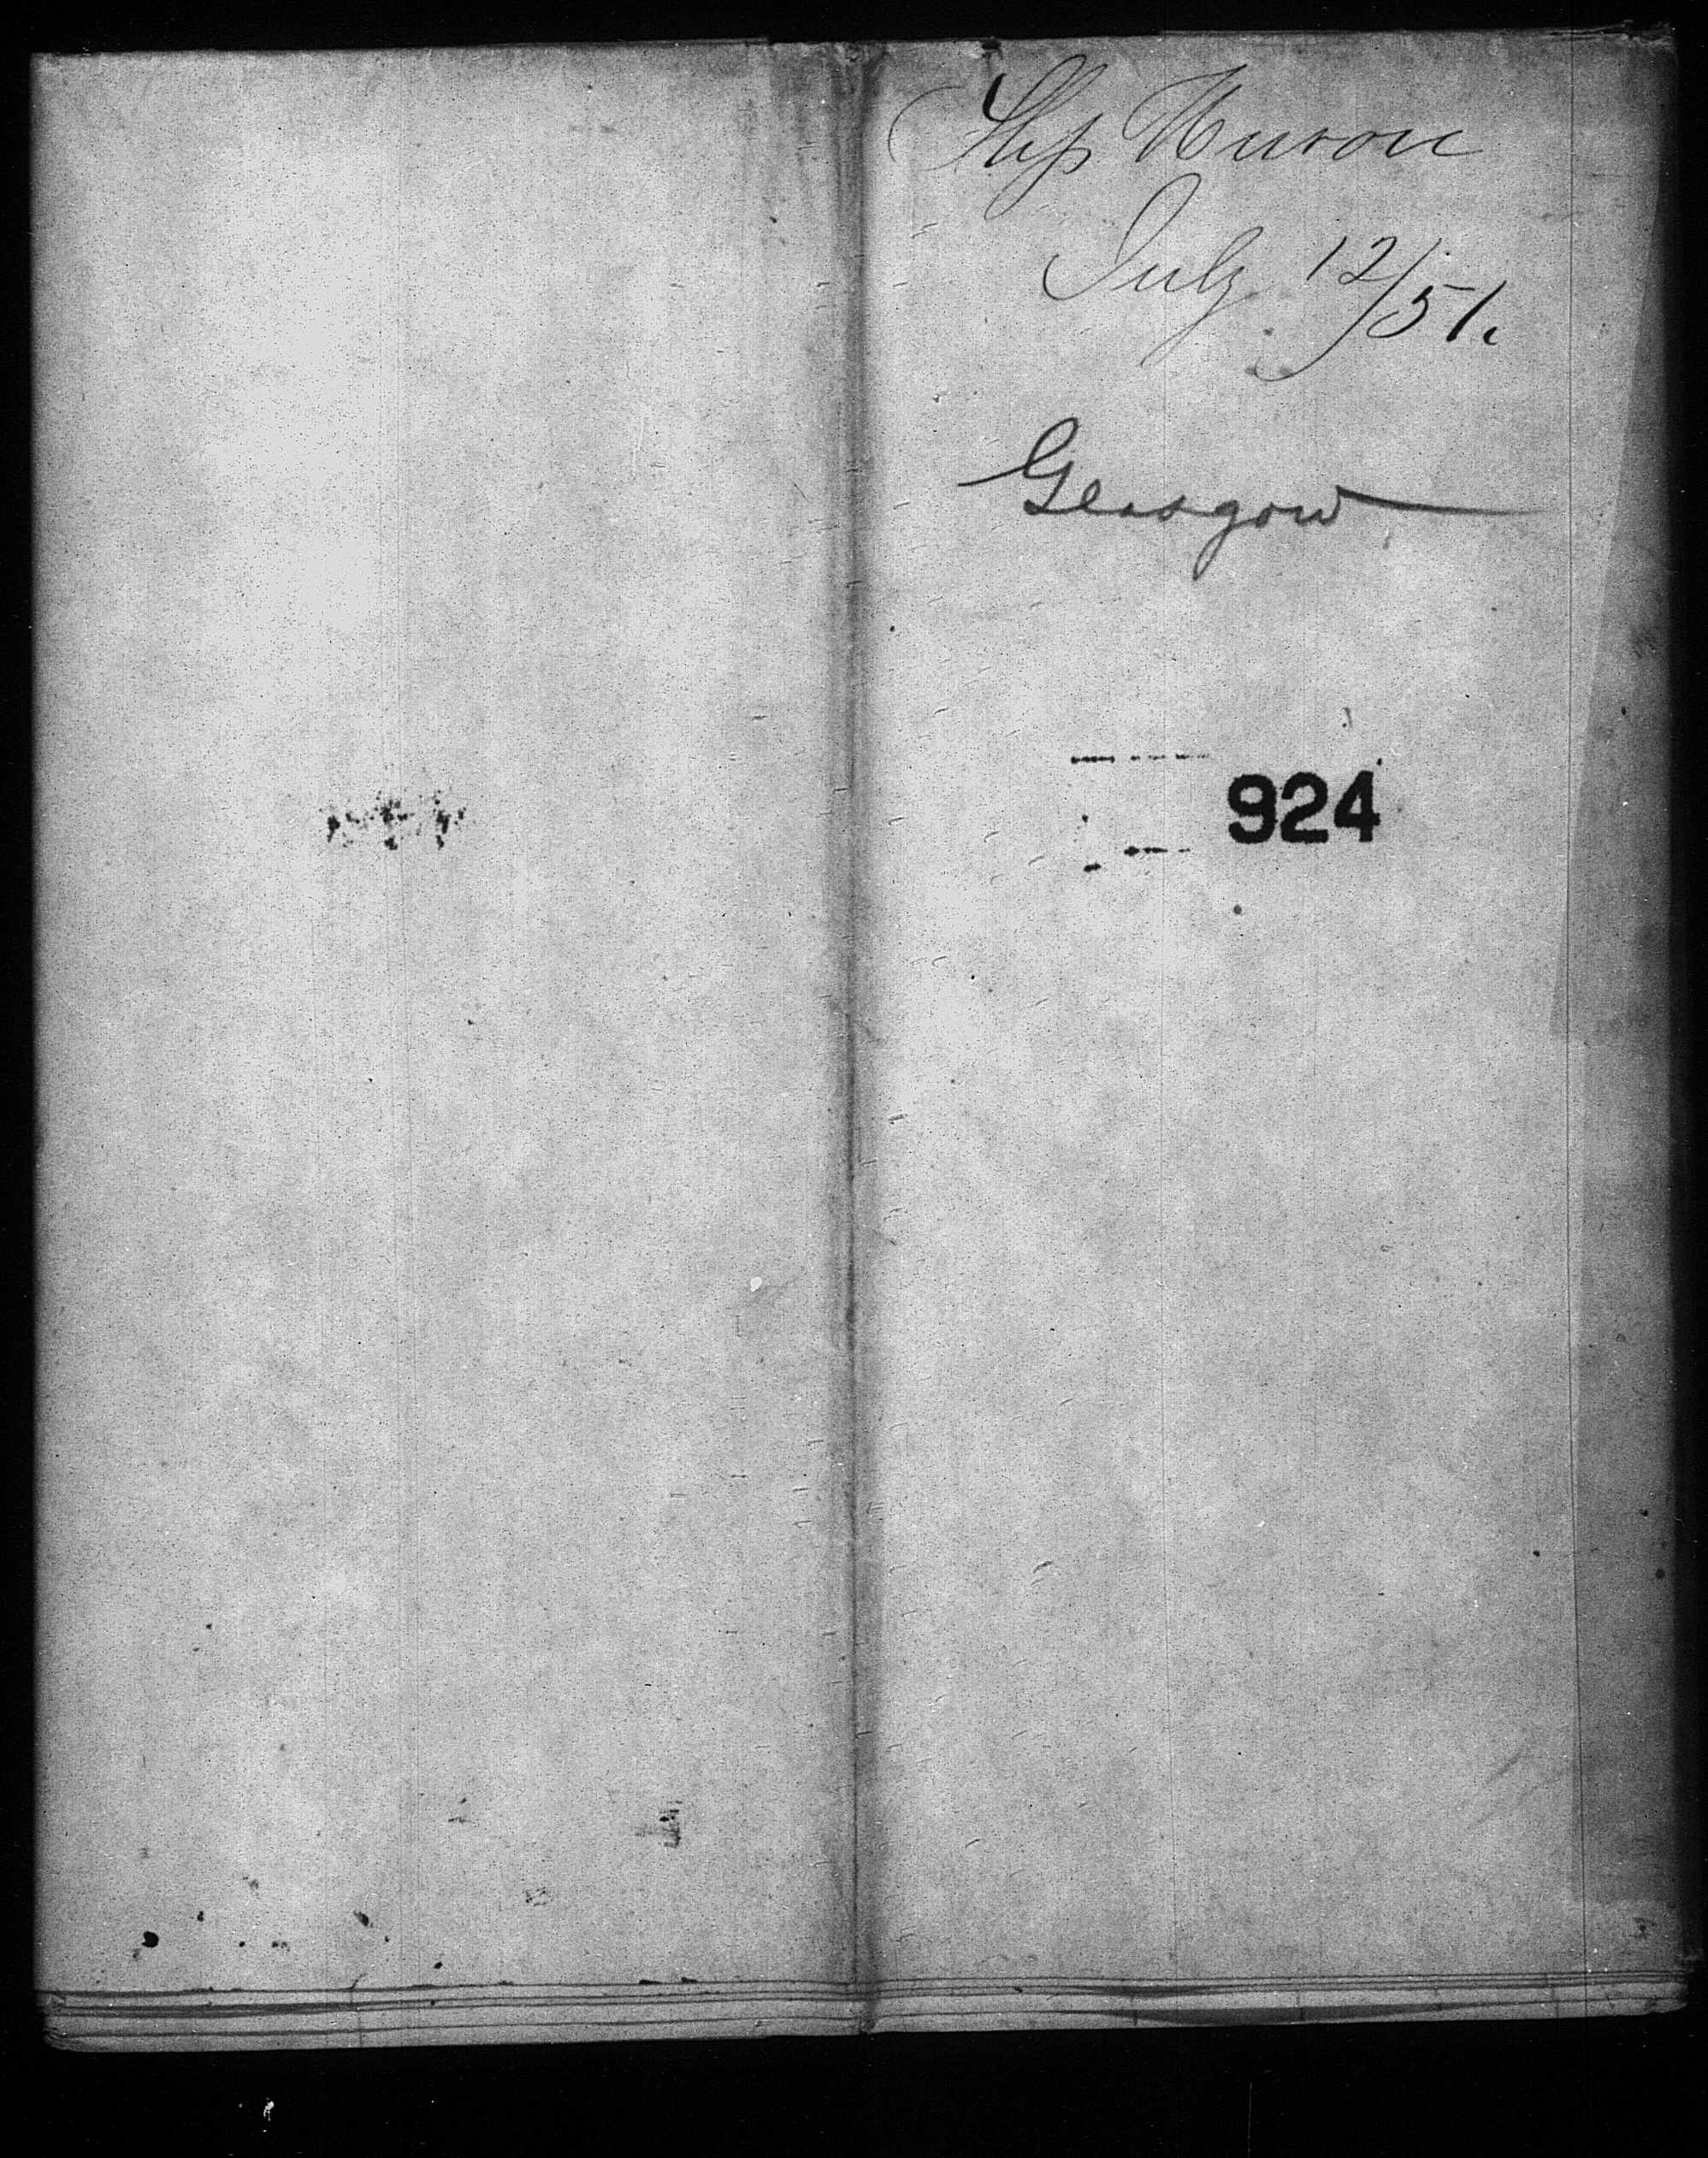 Ship Huron
July 12/51.
Glasgow
924